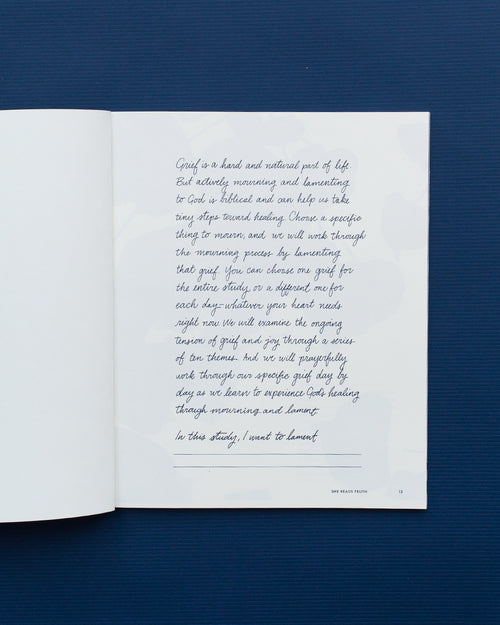 Grief is a hard and natural part of life.
But actively mourning and lamenting
to God is biblical and can help us take
tiny steps toward healing. Choose a specific
thing to mourn, and we will work through
the mourning process by lamenting
that grief. You can choose one grief for
the entire study or a different one for
each day—whatever your heart needs
right now. We will examine the ongoing
tension of grief and joy through a series
of ten themes. And we will prayerfully
work through our specific grief day by
day as we learn to experience God's healing
through mourning and lament.
In this study, I want to lament
SHE READS TRUTH 13